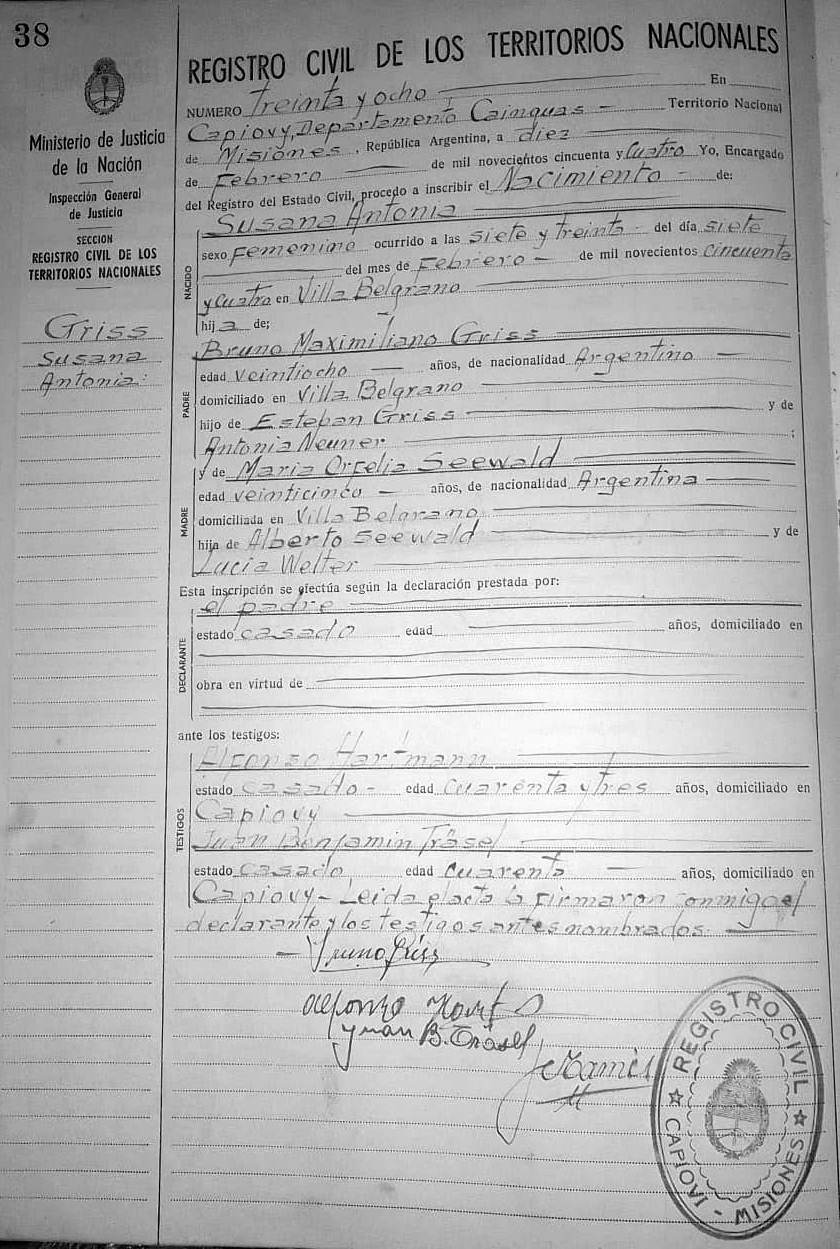 38
Ministerio de Justicia
de la Nación
Inspección General
de Justicia
SECCION
REGISTRO CIVIL DE LOS
TERRITORIOS NACIONALES
Griss
Susana
Antonia:
REGISTRO CIVIL DE LOS TERRITORIOS NACIONALES
NUMERO Treinta y ocho En
Capiovy, Departamento Cainguas - Territorio Nacional
de Misiones. República Argentina, a diez
de Febrero de mil novecientos cincuenta y Cuatro Yo, Encargado
del Registro del Estado Civil, procedo a inscribir el Nacimiento - de:
Susana Antonia
NACIDO
sexo Femenino ocurrido a las siete y treinta - del día siete
del mes de Febrero - de mil novecientos cincuenta
y cuatro en Villa Belgrano
hija de;
Bruno Maximiliano Griss
PADRE
edad veintiocho años, de nacionalidad Argentino
domiciliado en Villa Belgrano
hijo de Esteban Griss y de
Antonia Neuner ;
y de Maria Orfelia Seewald
MADRE
edad veinticinco - años, de nacionalidad Argentina
domiciliada en Villa Belgrano
hija de Alberto Seewald y de
Lucia Welter
Esta inscripción se efectúa según la declaración prestada por:
el padre
DECLARANTE
estado casado edad años, domiciliado en
obra en virtud de
ante los testigos:
Alfonso Hartmann
TESTIGOS
estado casado - edad cuarenta y tres años, domiciliado en
Capiovy
Juan Benjamin Träsel
estado casado edad cuarenta años, domiciliado en
Capiovy - Leida el acta la firmaron conmigo el
declarante y los testigos antes nombrados.
Bruno Griss
Alfonso
Juan B. Träsel
REGISTRO CIVIL
CAPIOVI - MISIONES